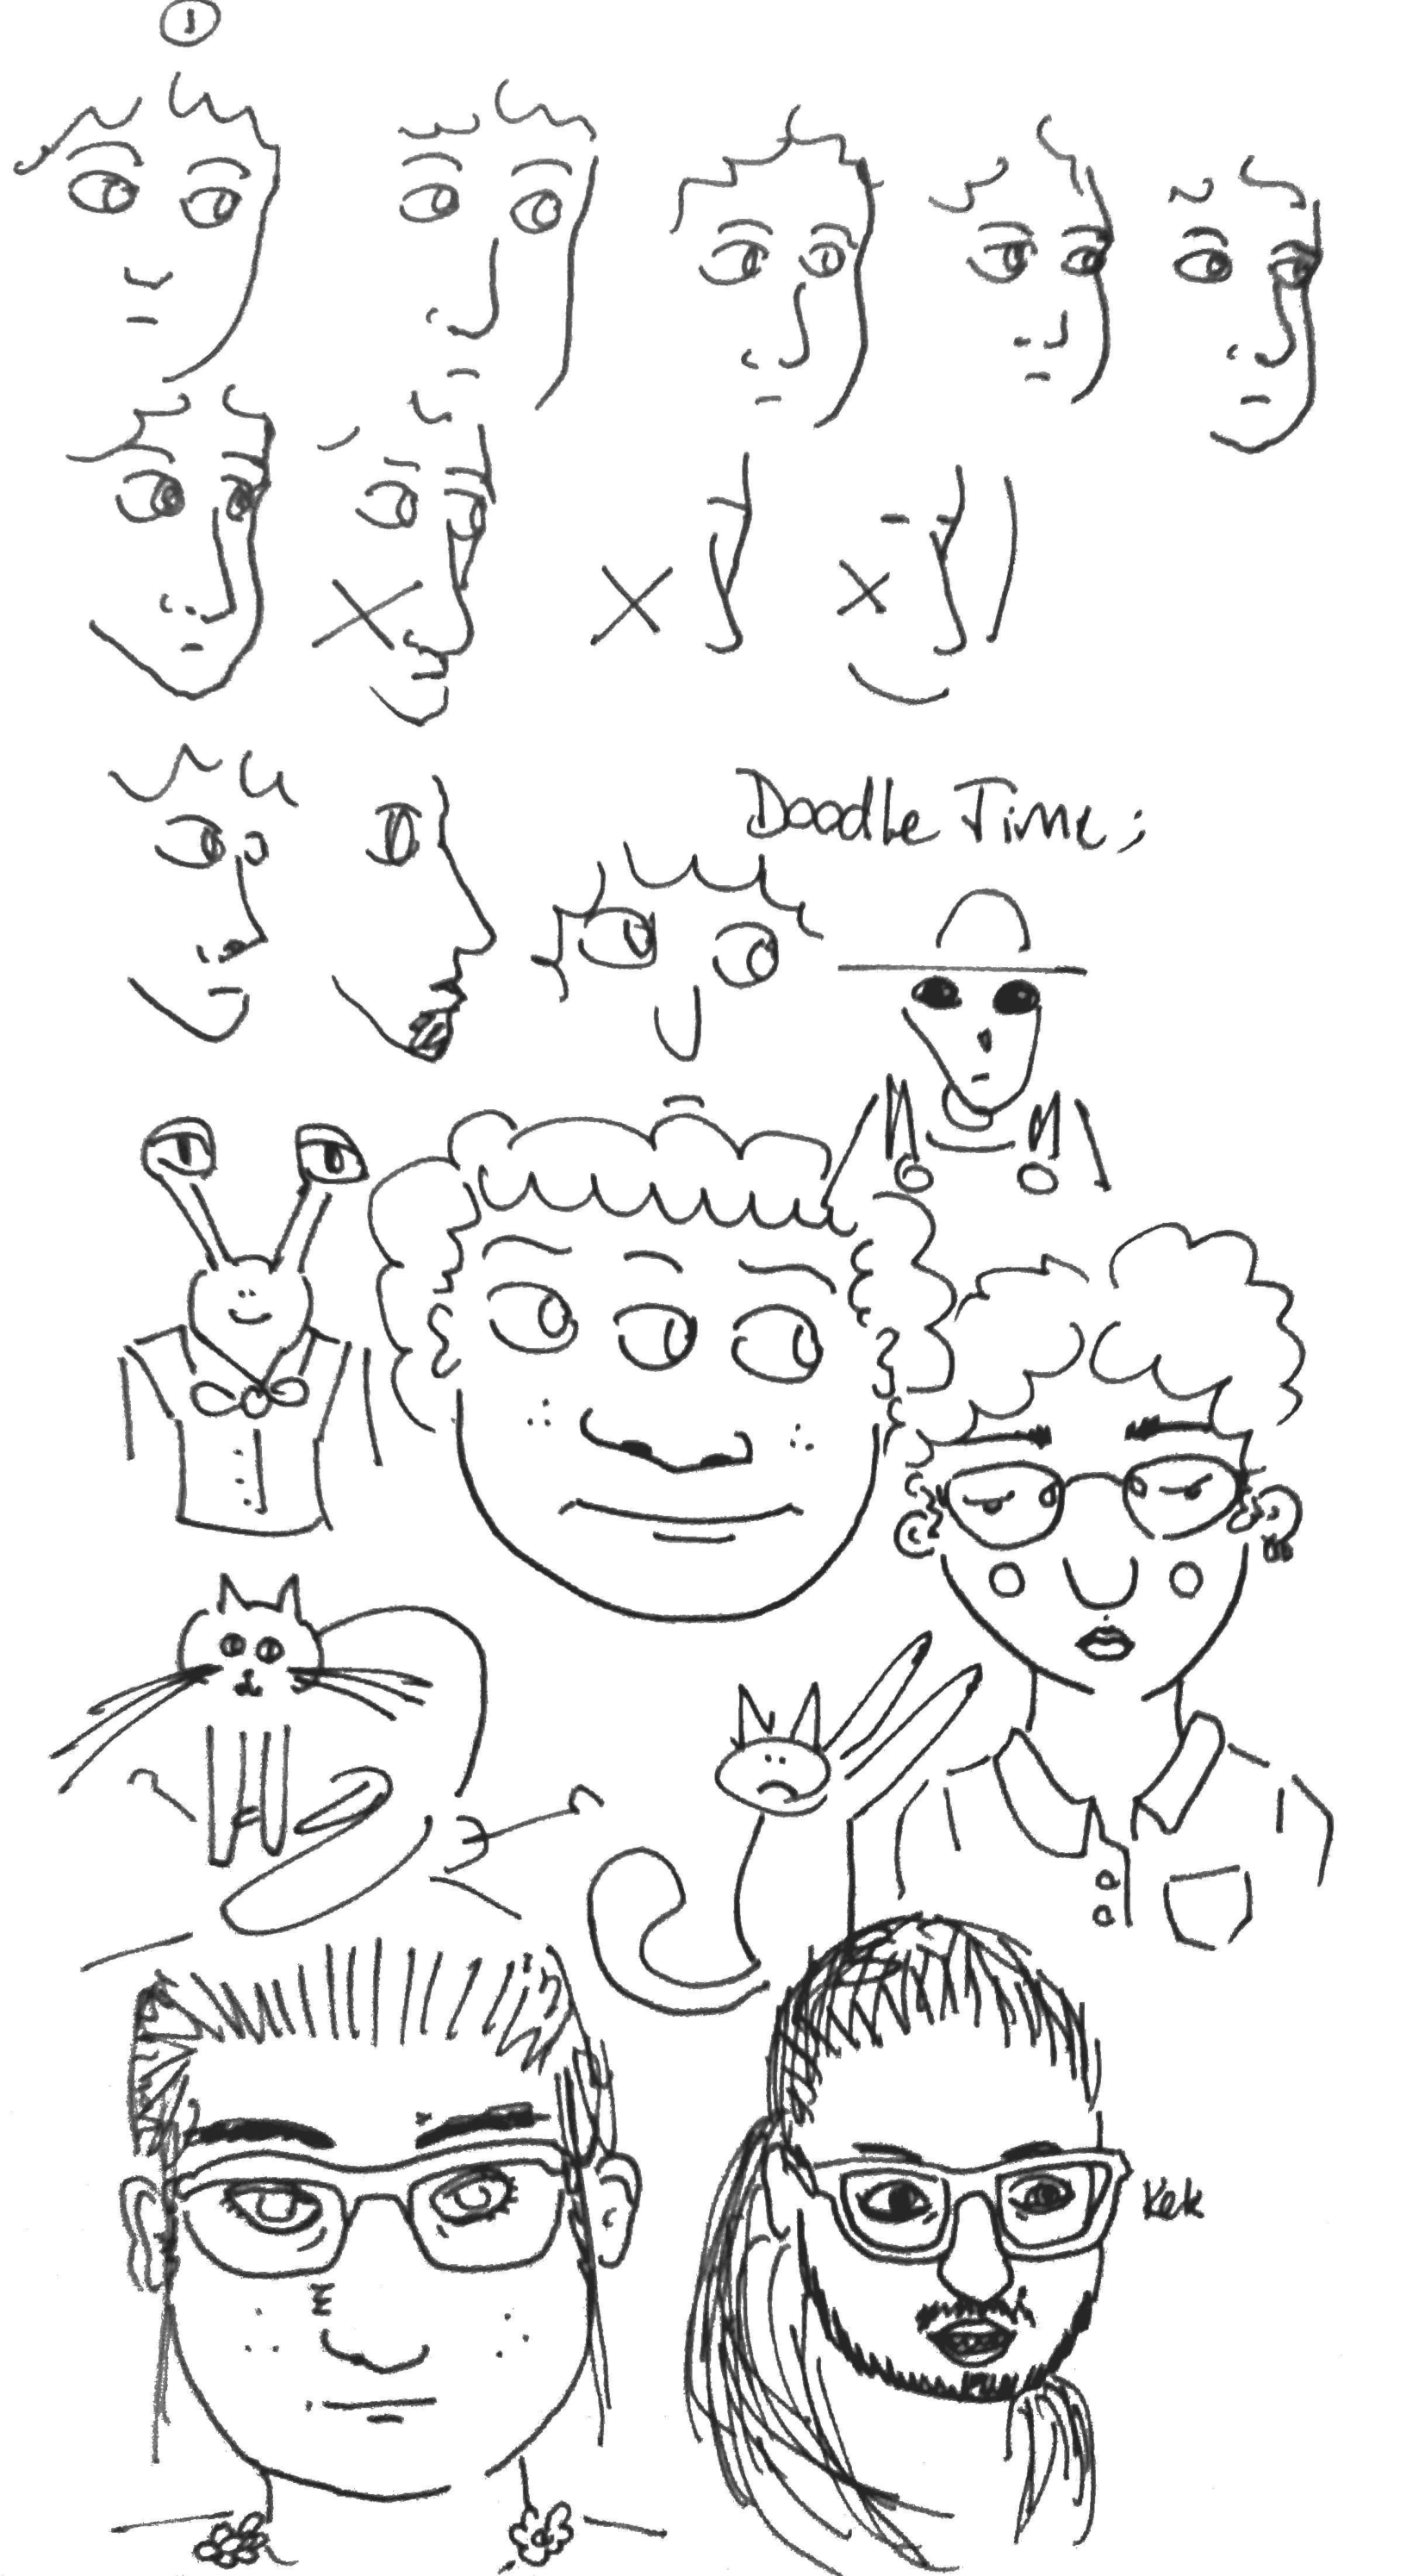 1
Doodle Time;
Kek